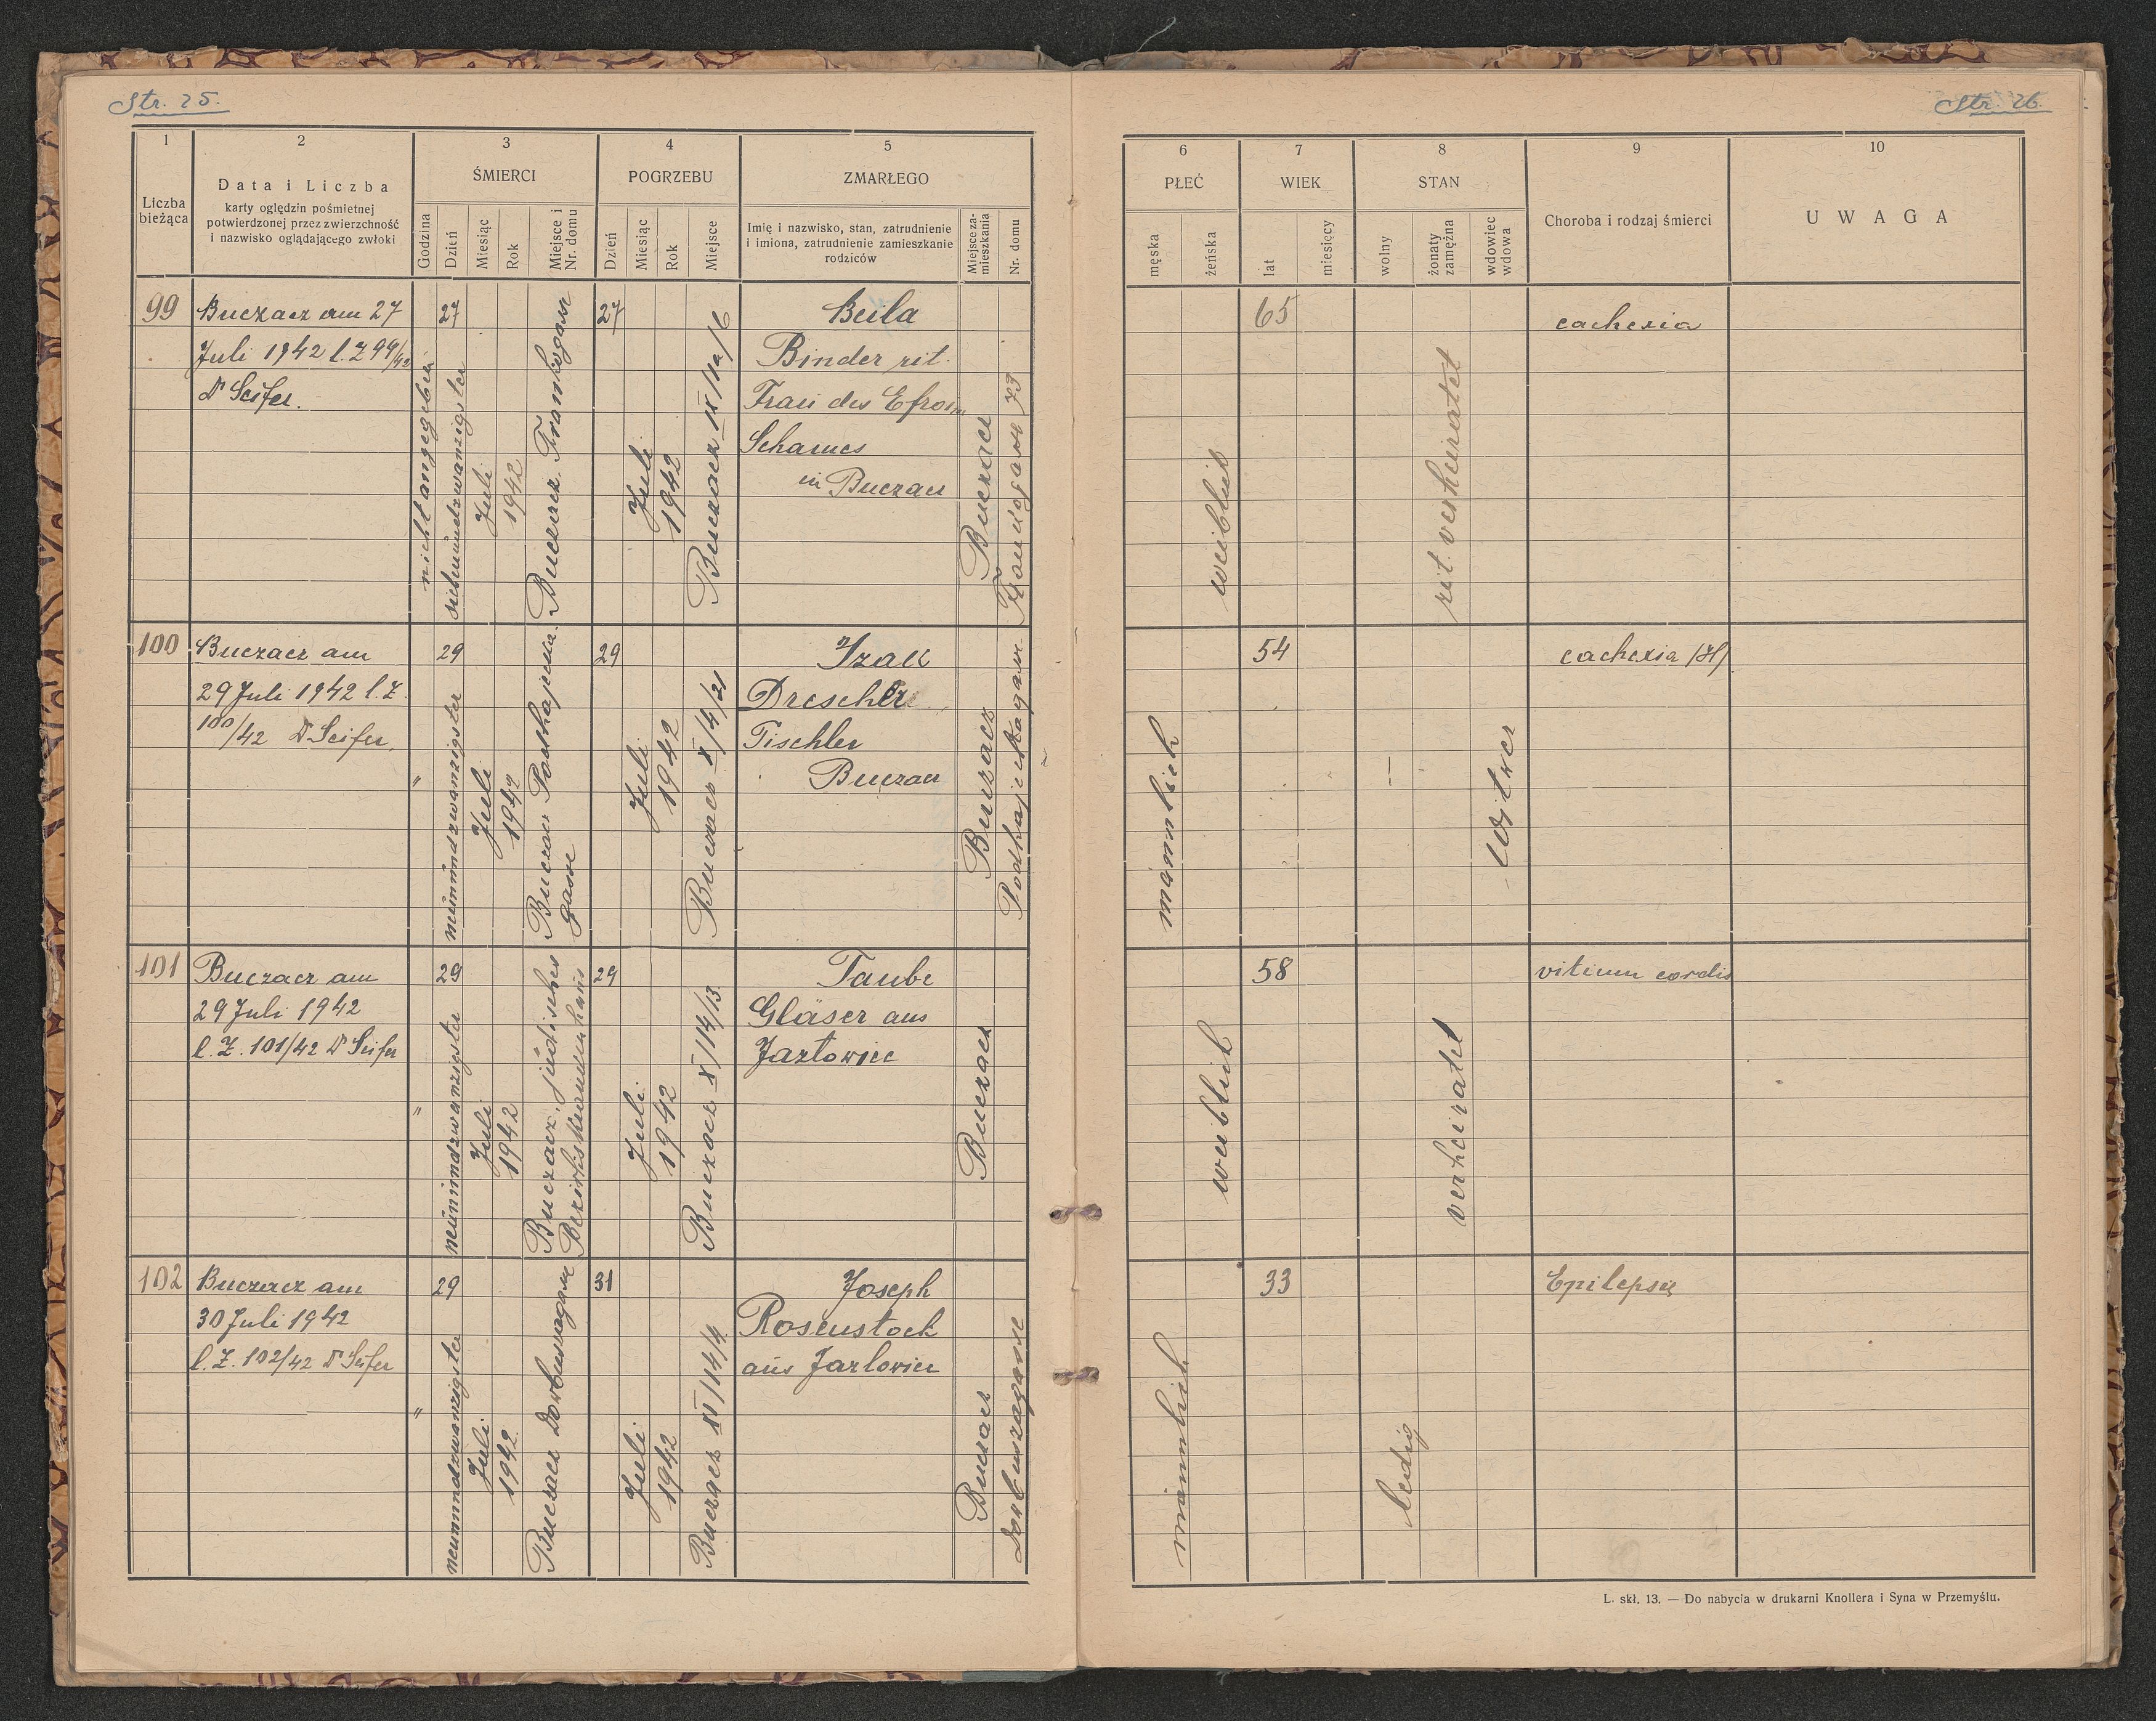 Str. 25.
1
2
3
4
5
Liczba
bieżąca
Data i Liczba
karty oględzin pośmietnej
potwierdzonej przez zwierzchność
i nazwisko oglądającego zwłoki
ŚMIERCI
Godzina
Dzień
Miesiąc
Rok
Miejsce i
Nr. domu
POGRZEBU
Dzień
Miesiąc
Rok
Miejsce
ZMARŁEGO
Imię i nazwisko, stan, zatrudnienie
i imiona, zatrudnienie zamieszkanie
rodziców
Miejsce za-
mieszkania
Nr. domu
99
Buczacz am 27
Juli 1942 l. Z 99/42
Dr Seifer.
nicht angegeben
27
siebenundzwanzigster
Juli
1942
Buczacz Frankogasse
27
Juli
1942
Buczacz IX/11a/6
Beila
Binder rit.
Frau des Efroim
Schames
in Buczacz
Buczacz
73
100
Buczacz am
29 Juli 1942 l. Z.
100/42 Dr Seifer,
"
29
neunundzwanzigster
Juli
1942
Buczacz Podhajecka-
gasse
29
Juli
1942
Buczacz X/4/21
Izak
Drescher
Tischler
Buczacz
Buczacz
Podhajeckagasse
101
Buczacz am
29 Juli 1942
l. Z. 101/42 Dr Seifer
"
29
neunundzwanzigster
Juli
1942
Buczacz, jüdisches
Bezirkskrankenhaus
29
Juli
1942
Buczacz X/14/13
Taube
Gläser aus
Jazłowiec
Buczacz
102
Buczacz am
30 Juli 1942
l. Z. 102/42 Dr Seifer
"
29
neunundzwanzigster
Juli
1942
Buczacz Dorbuszagasse
31
Juli
1942
Buczacz XI/14/4
Joseph
Rosenstock
aus Jazlowiec
Buczacz
Dorbuszagasse
Str. 26.
6
7
8
9
10
PŁEĆ
męska
żeńska
WIEK
lat
miesięcy
STAN
wolny
żonaty
zamężna
wdowiec
wdowa
Choroba i rodzaj śmierci
UWAGA
weiblich
65
rit. verheiratet
cachexia
männlich
54
Witwer
cachexia /H/
weiblich
58
verheiratet
vitium cordis
männlich
33
ledig
Epilepsie
L. skł. 13. — Do nabycia w drukarni Knollera i Syna w Przemyślu.